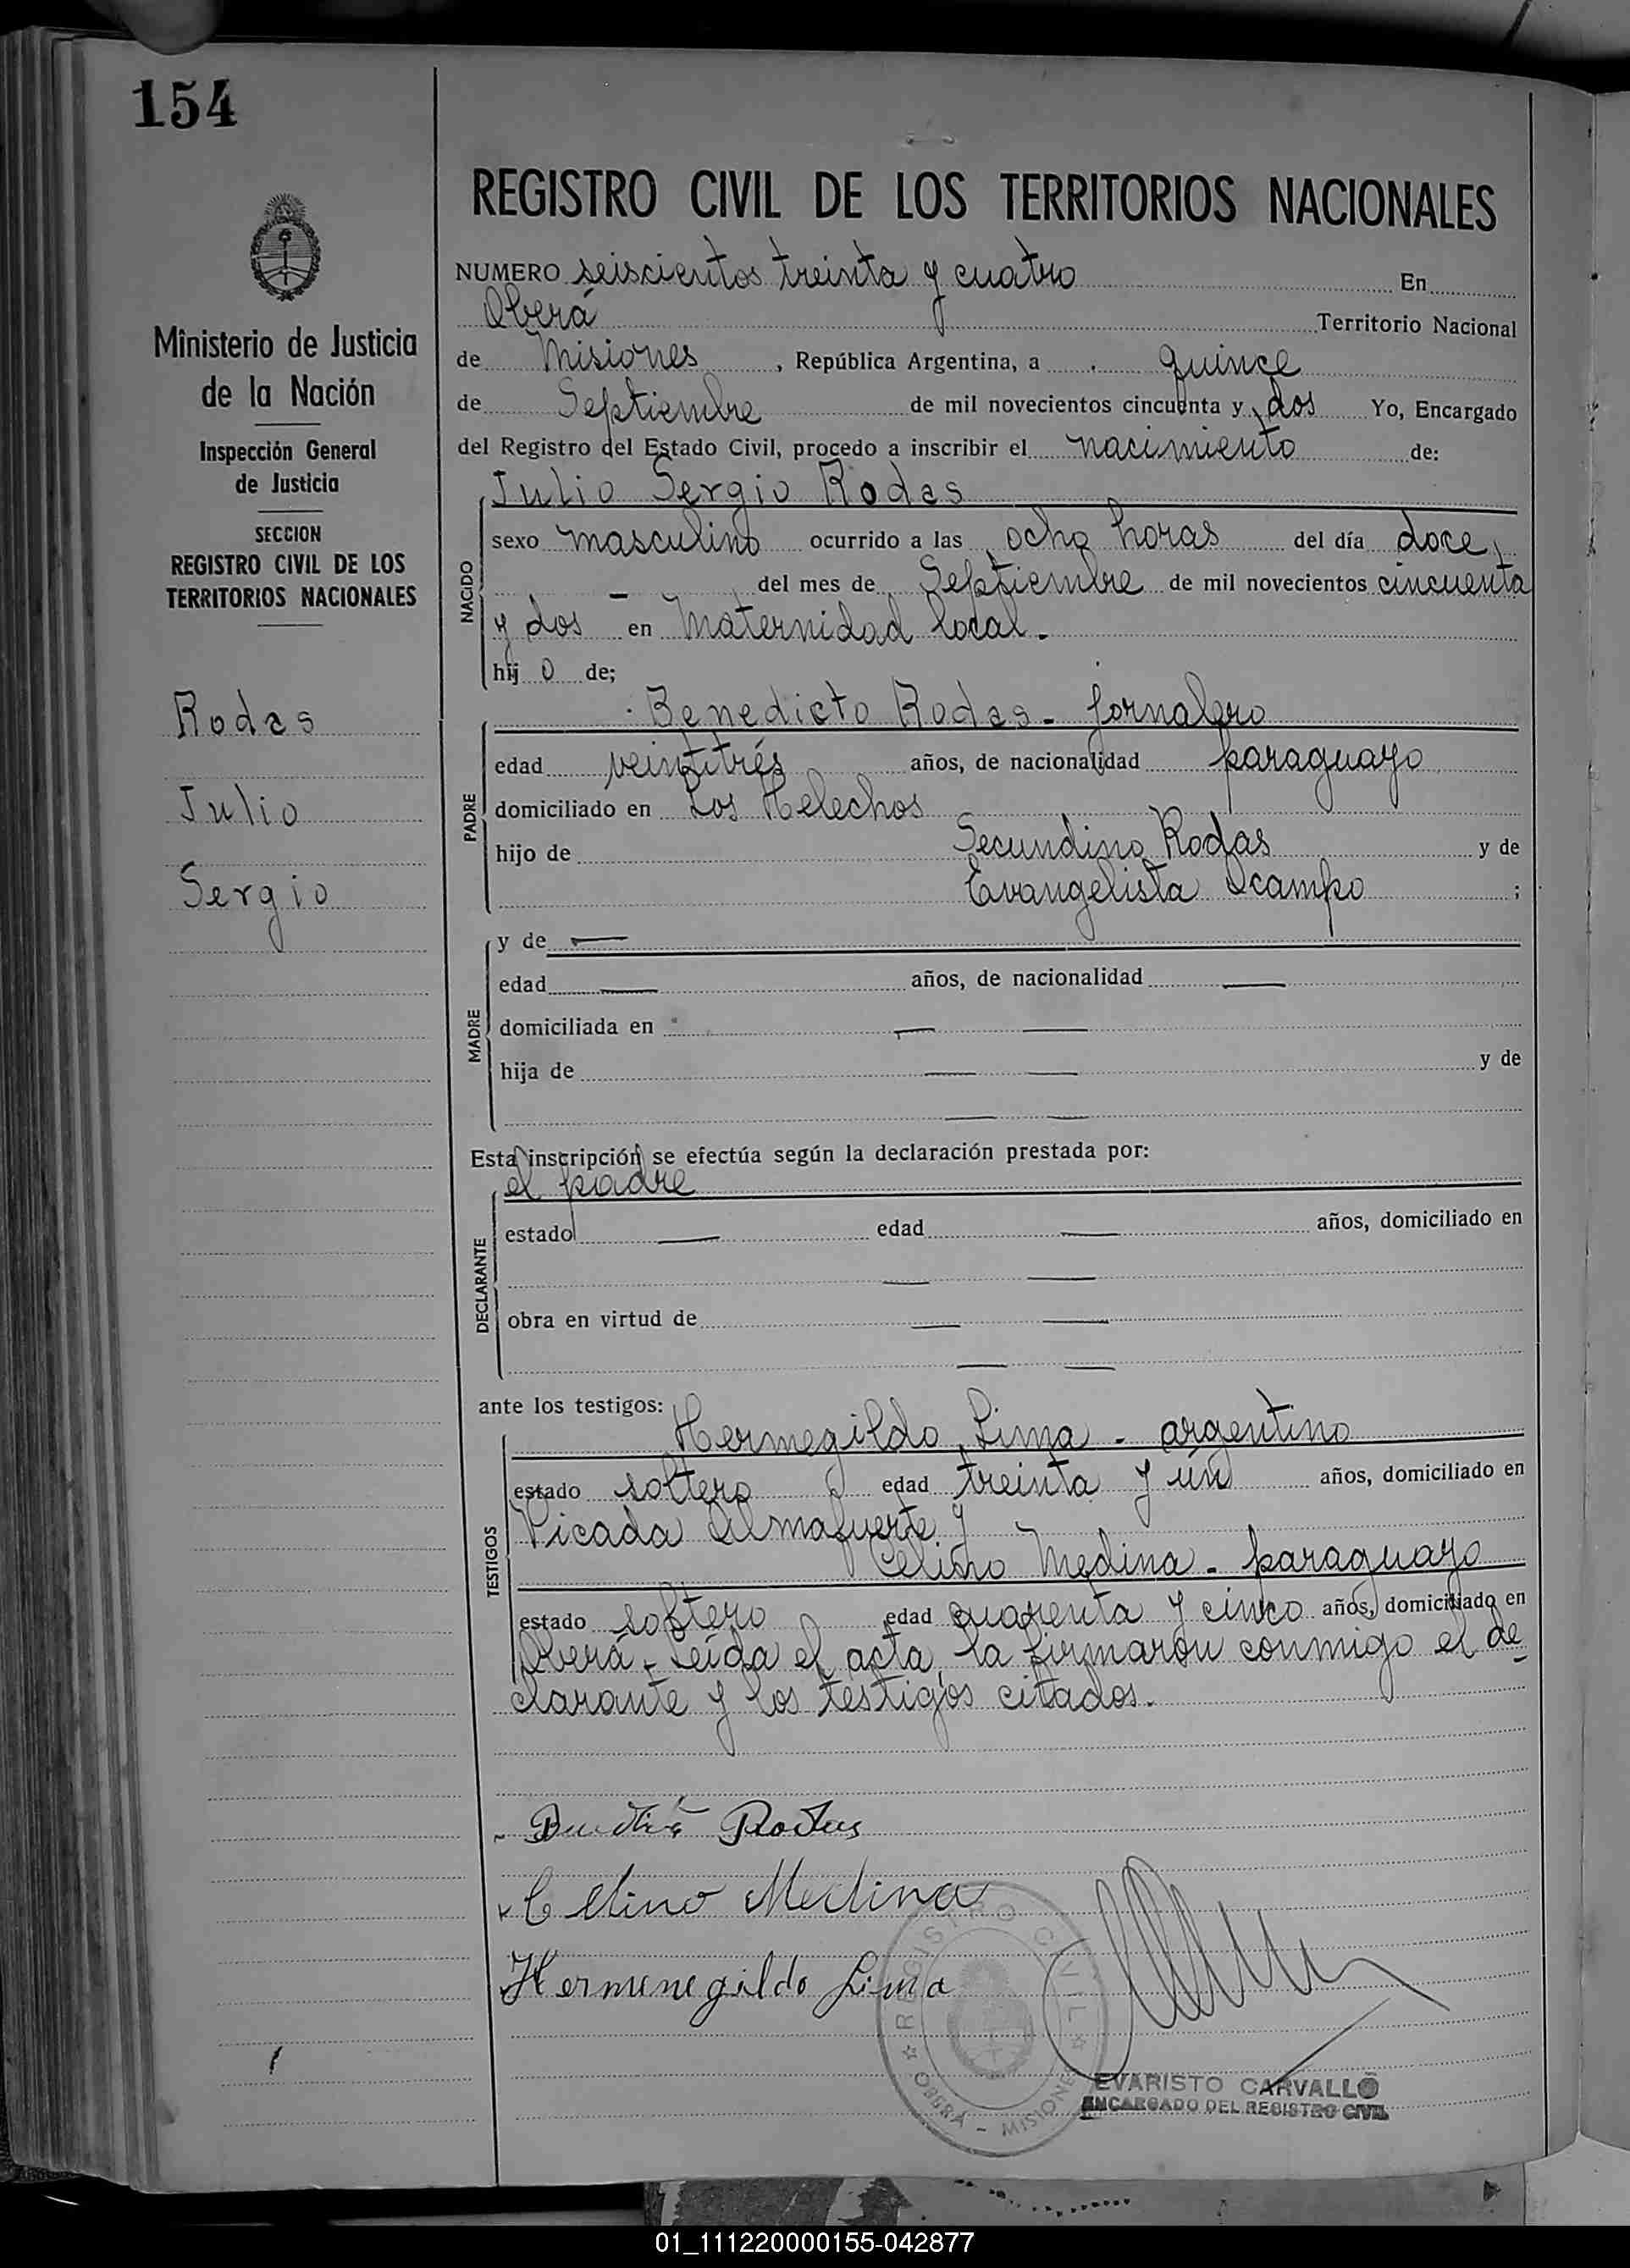 154
REGISTRO CIVIL DE LOS TERRITORIOS NACIONALES
Ministerio de Justicia
de la Nación
Inspección General
de Justicia
SECCION
REGISTRO CIVIL DE LOS
TERRITORIOS NACIONALES
Rodas
Julio
Sergio
NUMERO seiscientos treinta y cuatro En
Oberá Territorio Nacional
de Misiones, República Argentina, a quince
de Septiembre de mil novecientos cincuenta y dos Yo, Encargado
del Registro del Estado Civil, procedo a inscribir el nacimiento de:
Julio Sergio Rodas
NACIDO
sexo masculino ocurrido a las ocho horas del día doce
del mes de Septiembre de mil novecientos cincuenta
y dos — en Maternidad local.
hij o de;
Benedicto Rodas - jornalero
PADRE
edad veintitrés años, de nacionalidad paraguayo
domiciliado en Los Helechos
hijo de Secundino Rodas y de
Evangelista Ocampo ;
MADRE
y de —
edad — años, de nacionalidad —
domiciliada en — —
hija de — — y de
— —
Esta inscripción se efectúa según la declaración prestada por:
el padre
DECLARANTE
estado — edad — años, domiciliado en
— —
obra en virtud de — —
— —
ante los testigos:
Hermegildo Lima - argentino
TESTIGOS
estado soltero edad treinta y ún años, domiciliado en
Picada Almafuerte y
Celino Medina - paraguayo
estado soltero edad cuarenta y cinco años, domiciliado en
Oberá - Leída el acta, la firmaron conmigo el de-
clarante y los testigos citados.
Rodas
Celino Medina
Hermenegildo Lima
REGISTRO CIVIL
OBERÁ - MISIONES
EVARISTO CARVALLO
ENCARGADO DEL REGISTRO CIVIL
01_111220000155-042877